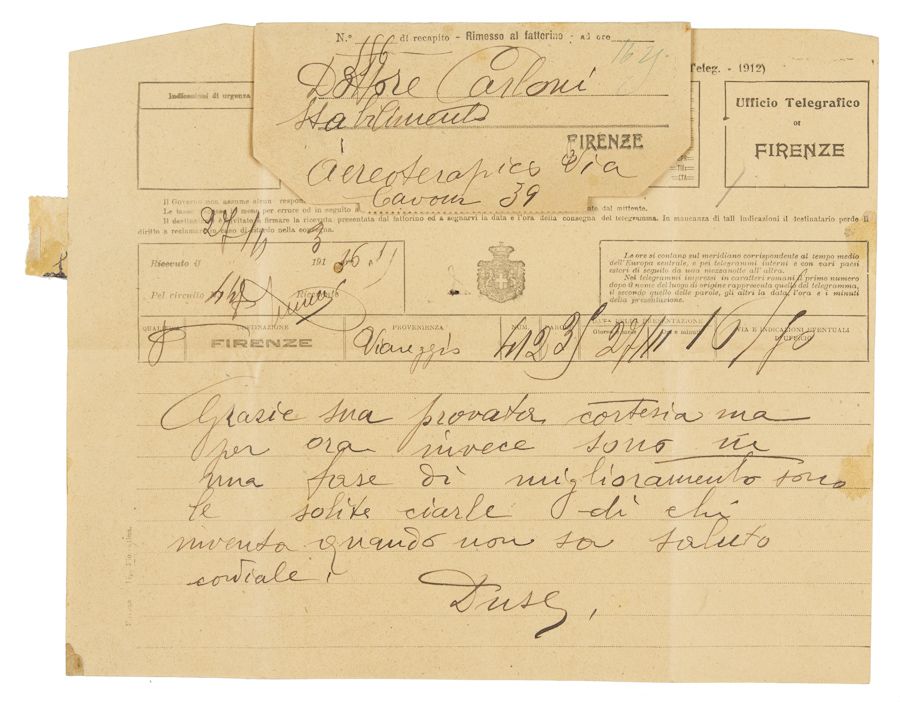 N.º 116 di recapito - Rimesso al fattorino - ad ore 16 25
Dottore Carloni
Stabilimento
FIRENZE
Aereoterapico Via
Cavour 39
Teleg. - 1912)
Indicazioni di urgenza
Ufficio Telegrafico
DI
FIRENZE
Il Governo non assume alcun respon
Le tasse
meno per errore od in seguito a
ate dal mittente.
Il destina
firmare la ricevuta presentata dal fattorino ed a segnarvi la data e l'ora della consegna del telegramma. In mancanza di tali indicazioni il destinatario perde il
diritto a reclamare in caso di ritardo nella consegna.
Ricevuto il
191
Pel circuito
Ricevente
Le ore si contano sul meridiano corrispondente al tempo medio
dell'Europa centrale, e pei telegrammi interni e con vari paesi
esteri di seguito da una mezzanotte all'altra.
Nei telegrammi impressi in caratteri romani il primo numero
dopo il nome del luogo di origine rappresenta quello del telegramma,
il secondo quello delle parole, gli altri la data, l'ora e i minuti
della presentazione.
QUALIFICA
DESTINAZIONE
PROVENIENZA
NUM.
PAROLE
DATA DELLA PRESENTAZIONE
Giorno e mese
Ore e minuti
VIA E INDICAZIONI EVENTUALI
D'UFFICIO
FIRENZE
Viareggio
Grazie sua provata cortesia ma
per ora invece sono in
una fase di miglioramento sono
le solite ciarle di chi
inventa quando non sa saluto
cordiale
Duse